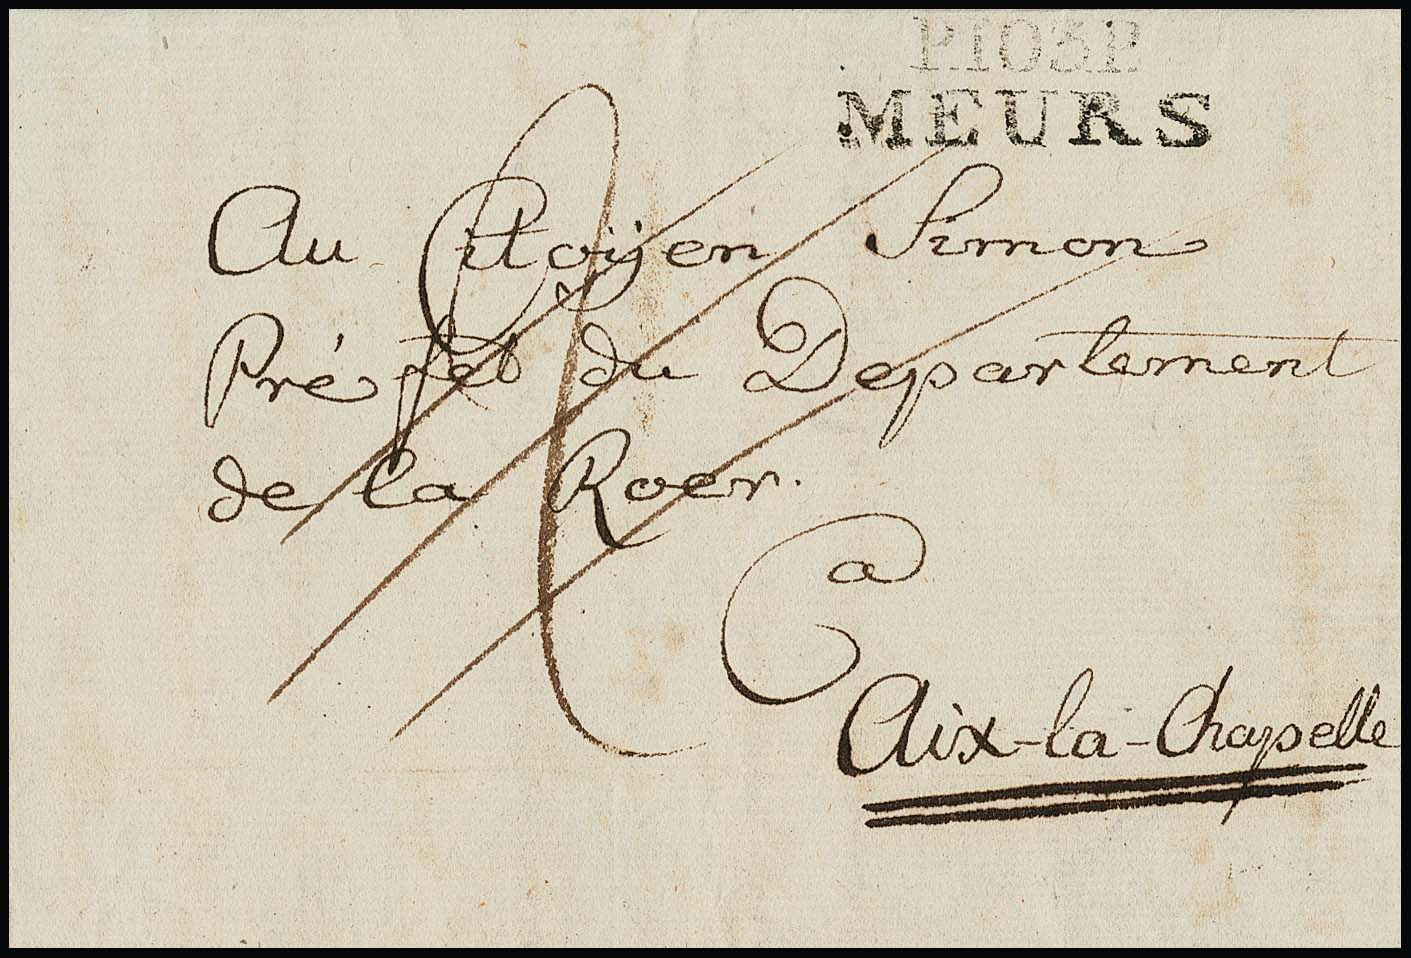 P.103.P.
MEURS
Au Citoyen Simon
Préfet du Departement
de la Roer.
a
Aix-la-Chapelle